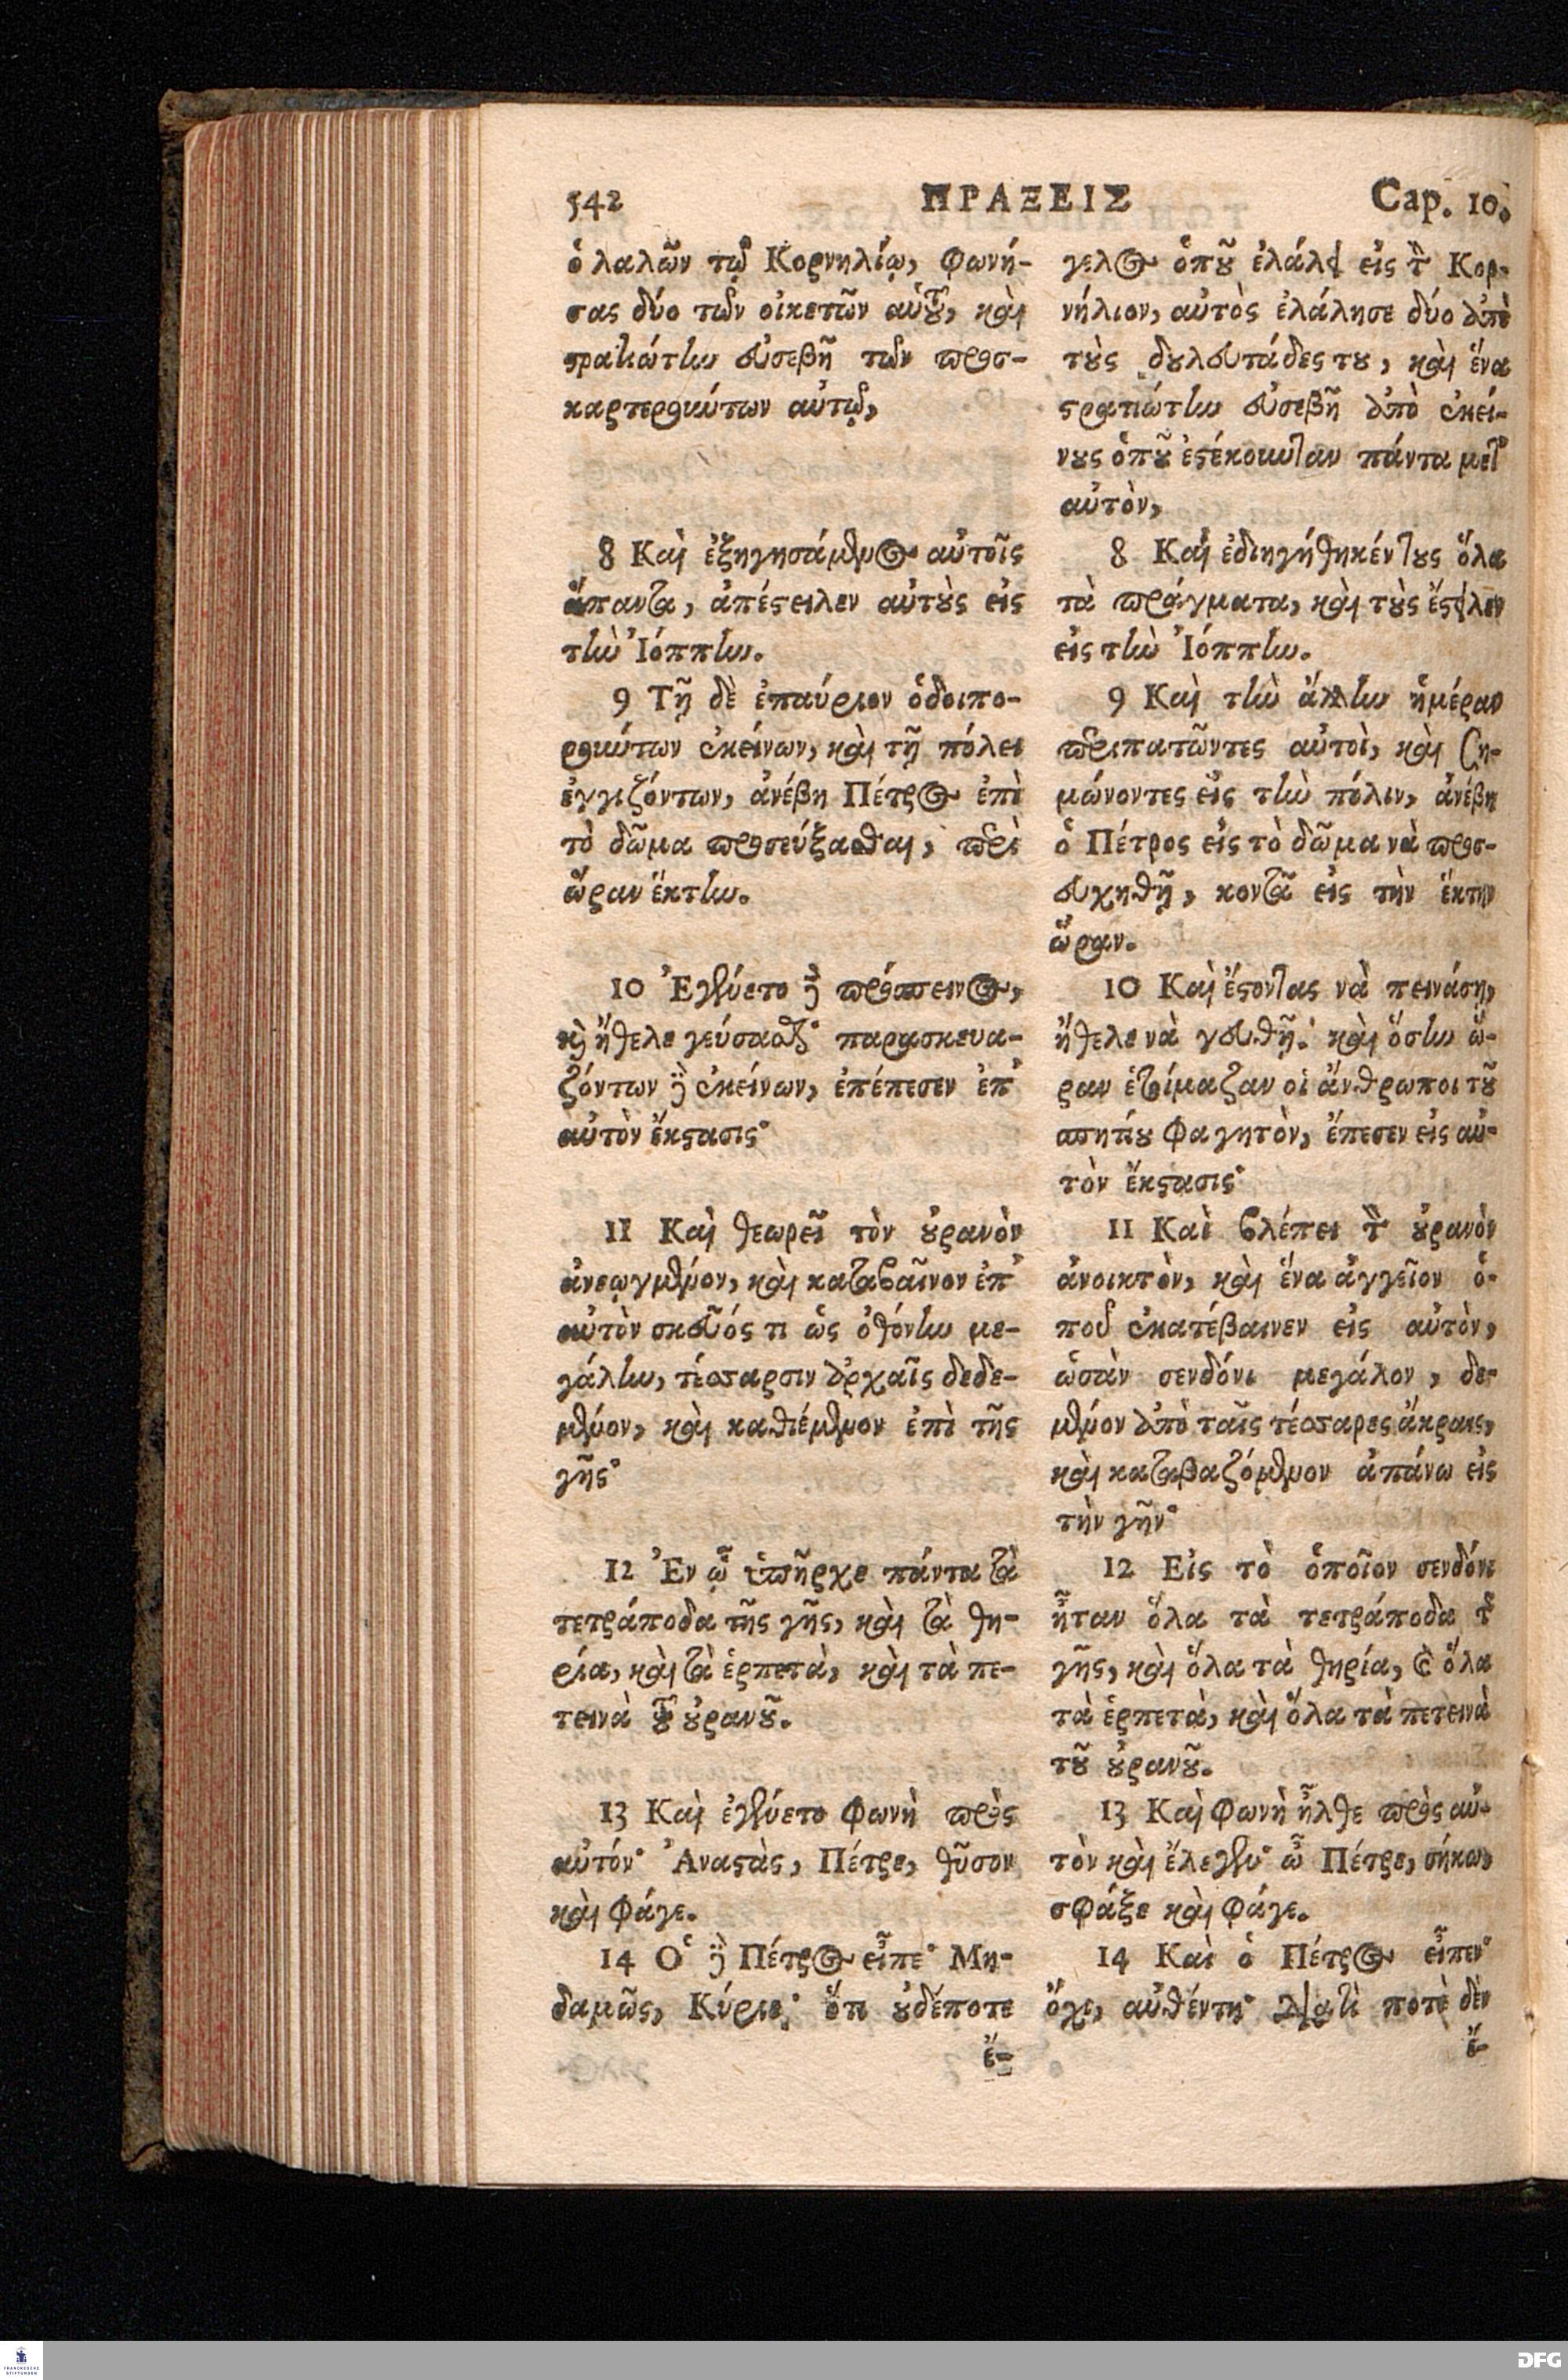 542 ΠΡΑΞΕΙΣ Cap. 10.
ὁ λαλῶν τῷ Κορνηλίῳ, φωνή-
σας δύο τῶν οἰκετῶν αὑτȣ͂, καὶ
ϛρατιώτην εὐσεβῆ τῶν προσ-
καρτερȣύτων αὐτῷ,
8 Καὶ ἐξηγησάμενος αὐτοῖς
ἅπαντα, ἀπέϛειλεν αὐτȣ̀ς εἰς
τὴν Ἰόππην.
9 Τῇ δὲ ἐπαύριον ὁδοιπο-
ρȣύτων ἐκείνων, καὶ τῇ πόλει
ἐγγιζόντων, ἀνέβη Πέτρος ἐπὶ
τὸ δῶμα προσεύξασθαι, περὶ
ὥραν ἕκτην.
10 Ἐγένετο δὲ πρόσπεινος,
καὶ ἤθελε γεύσασθαι· παρασκευα-
ζόντων δὲ ἐκείνων, ἐπέπεσεν ἐπ'
αὐτὸν ἔκϛασις·
11 Καὶ θεωρεῖ τὸν ȣ̓ρανὸν
ἀνεῳγμένον, καὶ καταβαῖνον ἐπ'
αὐτὸν σκεῦός τι ὡς ὀθόνην με-
γάλην, τέσσαρσιν ἀρχαῖς δεδε-
μένον, καὶ καθιέμενον ἐπὶ τῆς
γῆς·
12 Ἐν ᾧ ὑπῆρχε πάντα τὰ
τετράποδα τῆς γῆς, καὶ τὰ θη-
ρία, καὶ τὰ ἑρπετὰ, καὶ τὰ πε-
τεινὰ τȣ͂ ȣ̓ρανȣ͂.
13 Καὶ ἐγένετο φωνὴ πρὸς
αὐτόν· Ἀναϛὰς, Πέτρε, θῦσον
καὶ φάγε.
14 Ὁ δὲ Πέτρος εἶπε· Μη-
δαμῶς, Κύριε· ὅτι ȣ̓δέποτε
ἔ-
γελος ὁπȣ͂ ἐλάλει εἰς τὸν Κορ-
νήλιον, αὐτὸς ἐλάλησε δύο ἀπὸ
τȣ̀ς δȣλευτάδες τȣ, καὶ ἕνα
ϛρατιώτην εὐσεβῆ ἀπὸ ἐκεί-
νȣς ὁπȣ͂ ἐϛέκονταν πάντα μετ'
αὐτὸν,
8 Καὶ ἐδιηγήθηκέν τȣς ὅλα
τὰ πράγματα, καὶ τȣ̀ς ἔϛειλεν
εἰς τὴν Ἰόππην.
9 Καὶ τὴν ἄλλην ἡμέραν
περιπατῶντες αὐτοὶ, καὶ ζη-
μώνοντες εἰς τὴν πόλιν, ἀνέβη
ὁ Πέτρος εἰς τὸ δῶμα νὰ προσ-
ευχηθῇ, κοντὰ εἰς τὴν ἕκτην
ὥραν.
10 Καὶ ἔϛοντας νὰ πεινάσῃ,
ἤθελε νὰ γευθῇ· καὶ ὅσην ὥ-
ραν ἑτοίμαζαν οἱ ἄνθρωποι τȣ͂
σπητίȣ φαγητὸν, ἔπεσεν εἰς αὐ-
τὸν ἔκϛασις·
11 Καὶ βλέπει τὸν ȣ̓ρανὸν
ἀνοικτὸν, καὶ ἕνα ἀγγεῖον ὁ-
ποῦ ἐκατέβαινεν εἰς αὐτὸν,
ὡσὰν σενδόνι μεγάλον, δε-
μένον ἀπὸ ταῖς τέσσαρες ἄκραις,
καὶ καταβαζόμενον ἀπάνω εἰς
τὴν γῆν·
12 Εἰς τὸ ὁποῖον σενδόνι
ἦταν ὅλα τὰ τετράποδα τῆς
γῆς, καὶ ὅλα τὰ θηρία, καὶ ὅλα
τὰ ἑρπετὰ, καὶ ὅλα τὰ πετεινὰ
τȣ͂ ȣ̓ρανȣ͂.
13 Καὶ φωνὴ ἦλθε πρὸς αὐ-
τὸν καὶ ἔλεγεν· ὦ Πέτρε, σήκω,
σφάξε καὶ φάγε.
14 Καὶ ὁ Πέτρος εἶπεν·
ὄχι, αὐθέντη· διατὶ ποτὲ δὲν
ἔ-
FRANCKESCHE
STIFTUNGEN
DFG